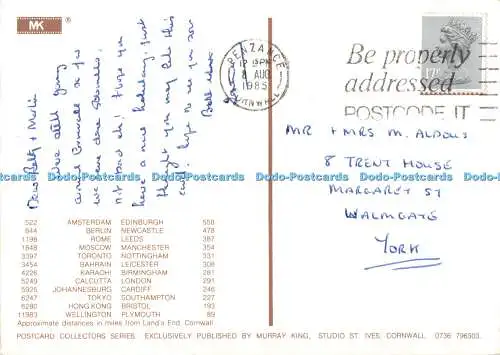 MK ®
Dear Betty + Merlin
We're still going
around Cornwall as you
we have done Brownells.
not band eh! I hope you
have a nice holiday, just
thought you may like this
card! hope to see you soon
PENZANCE
12 15PM
8 AUG
1985
CORNWALL
Be properly
addressed
POSTCODE IT
17P
MR + MRS M. ALDOUS
8 TRENT HOUSE
MARGARET ST
WALMGATE
YORK
www.Postcards-World.com
522 AMSTERDAM EDINBURGH 558
844 BERLIN NEWCASTLE 478
1198 ROME LEEDS 387
1848 MOSCOW MANCHESTER 354
3397 TORONTO NOTTINGHAM 331
3454 BAHRAIN LEICESTER 308
4226 KARACHI BIRMINGHAM 281
5249 CALCUTTA LONDON 291
5925 JOHANNESBURG CARDIFF 246
6247 TOKYO SOUTHAMPTON 227
6280 HONG KONG BRISTOL 193
11983 WELLINGTON PLYMOUTH 89
Approximate distances in miles from Land's End, Cornwall
POSTCARD COLLECTORS SERIES. EXCLUSIVELY PUBLISHED BY MURRAY KING, STUDIO ST. IVES, CORNWALL. 0736 796303.